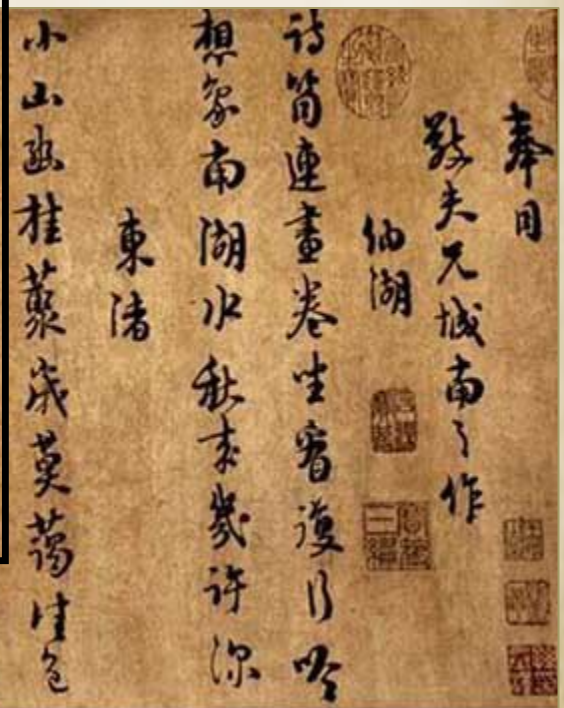 奉同
敬夫兄城南之作
納湖
詩筒連畫卷坐看復行吟
想象南湖水秋來幾許深
東渚
小山幽桂藂歲莫藹佳色